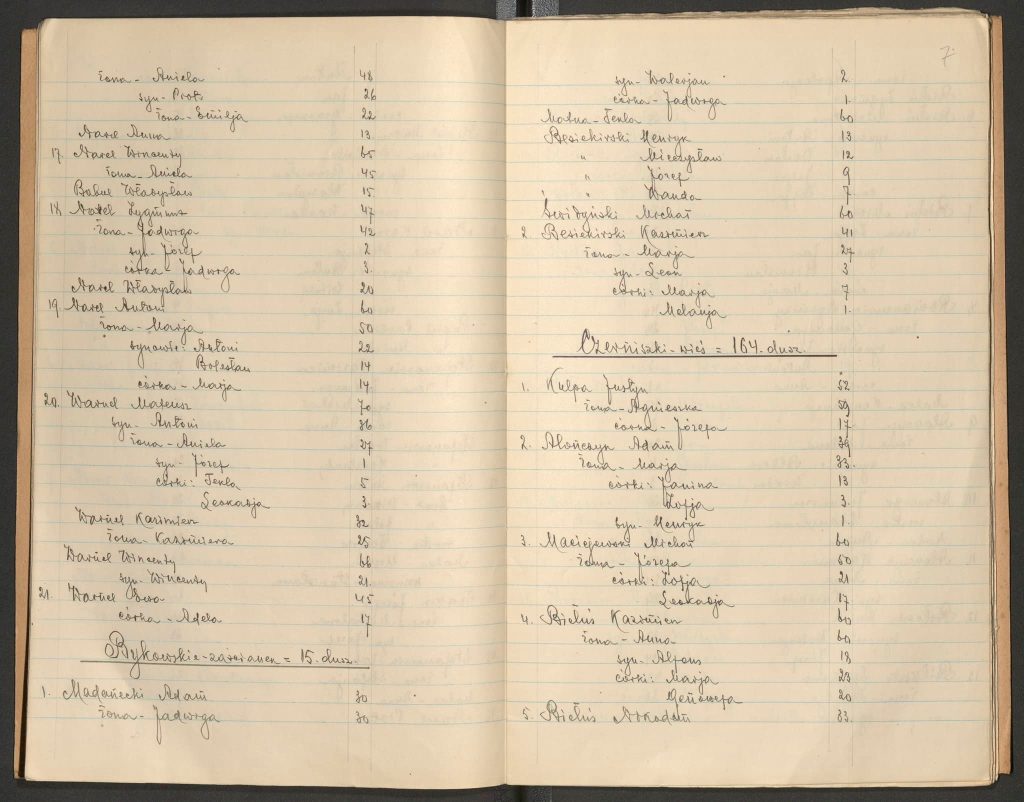 żona - Aniela 48
syn - Piotr 26
żona - Emilja 22
Narel Anna 13
17. Narel Wincenty 65
żona - Aniela 45
Babul Władysław 15
18. Narel Zygmunt 47
żona - Jadwiga 42
syn - Józef 2
córka - Jadwiga 3
Narel Władysław 20
19. Narel Antoni 60
żona - Marja 50
synowie: Antoni 22
Bolesław 14
córka - Marja 14
20. Waruel Mateusz 70
syn - Antoni 36
żona - Aniela 27
syn - Józef 1
córki: Tekla 5
Leokadja 3
Waruel Kazimierz 32
żona - Kazimiera 25
Waruel Wincenty 66
syn - Wincenty 21
21. Waruel Ewa 45
córka - Adela 17
Bykowskie - zaścianek = 15. dusz.
1. Madanecki Adam 30
żona - Jadwiga 30
7.
syn - Walerjan 2
córka - Jadwiga 1
Matka - Tekla 60
Besiekirski Henryk 13
" Mieczysław 12
" Józef 9
" Wanda 7
Świdyński Michał 60
2. Besiekirski Kazimierz 41
żona - Marja 27
syn - Leon 3
córki: Marja 7
Melanja 1
Czerniszki - wieś = 164. dusz.
1. Kulpa Justyn 52
żona - Agnieszka 59
córka - Józefa 17
2. Alończyk Adam 39
żona - Marja 33.
córki: Janina 13
Zofja 3.
syn - Henryk 1.
3. Maciejewski Michał 60
żona - Józefa 50
córki: Zofja 21
Leokadja 17
4. Bieluś Kazimierz 60
żona - Anna 60
syn - Alfons 18
córki: Marja 23
Genowefa 20
5. Bieluś Arkadam 33.